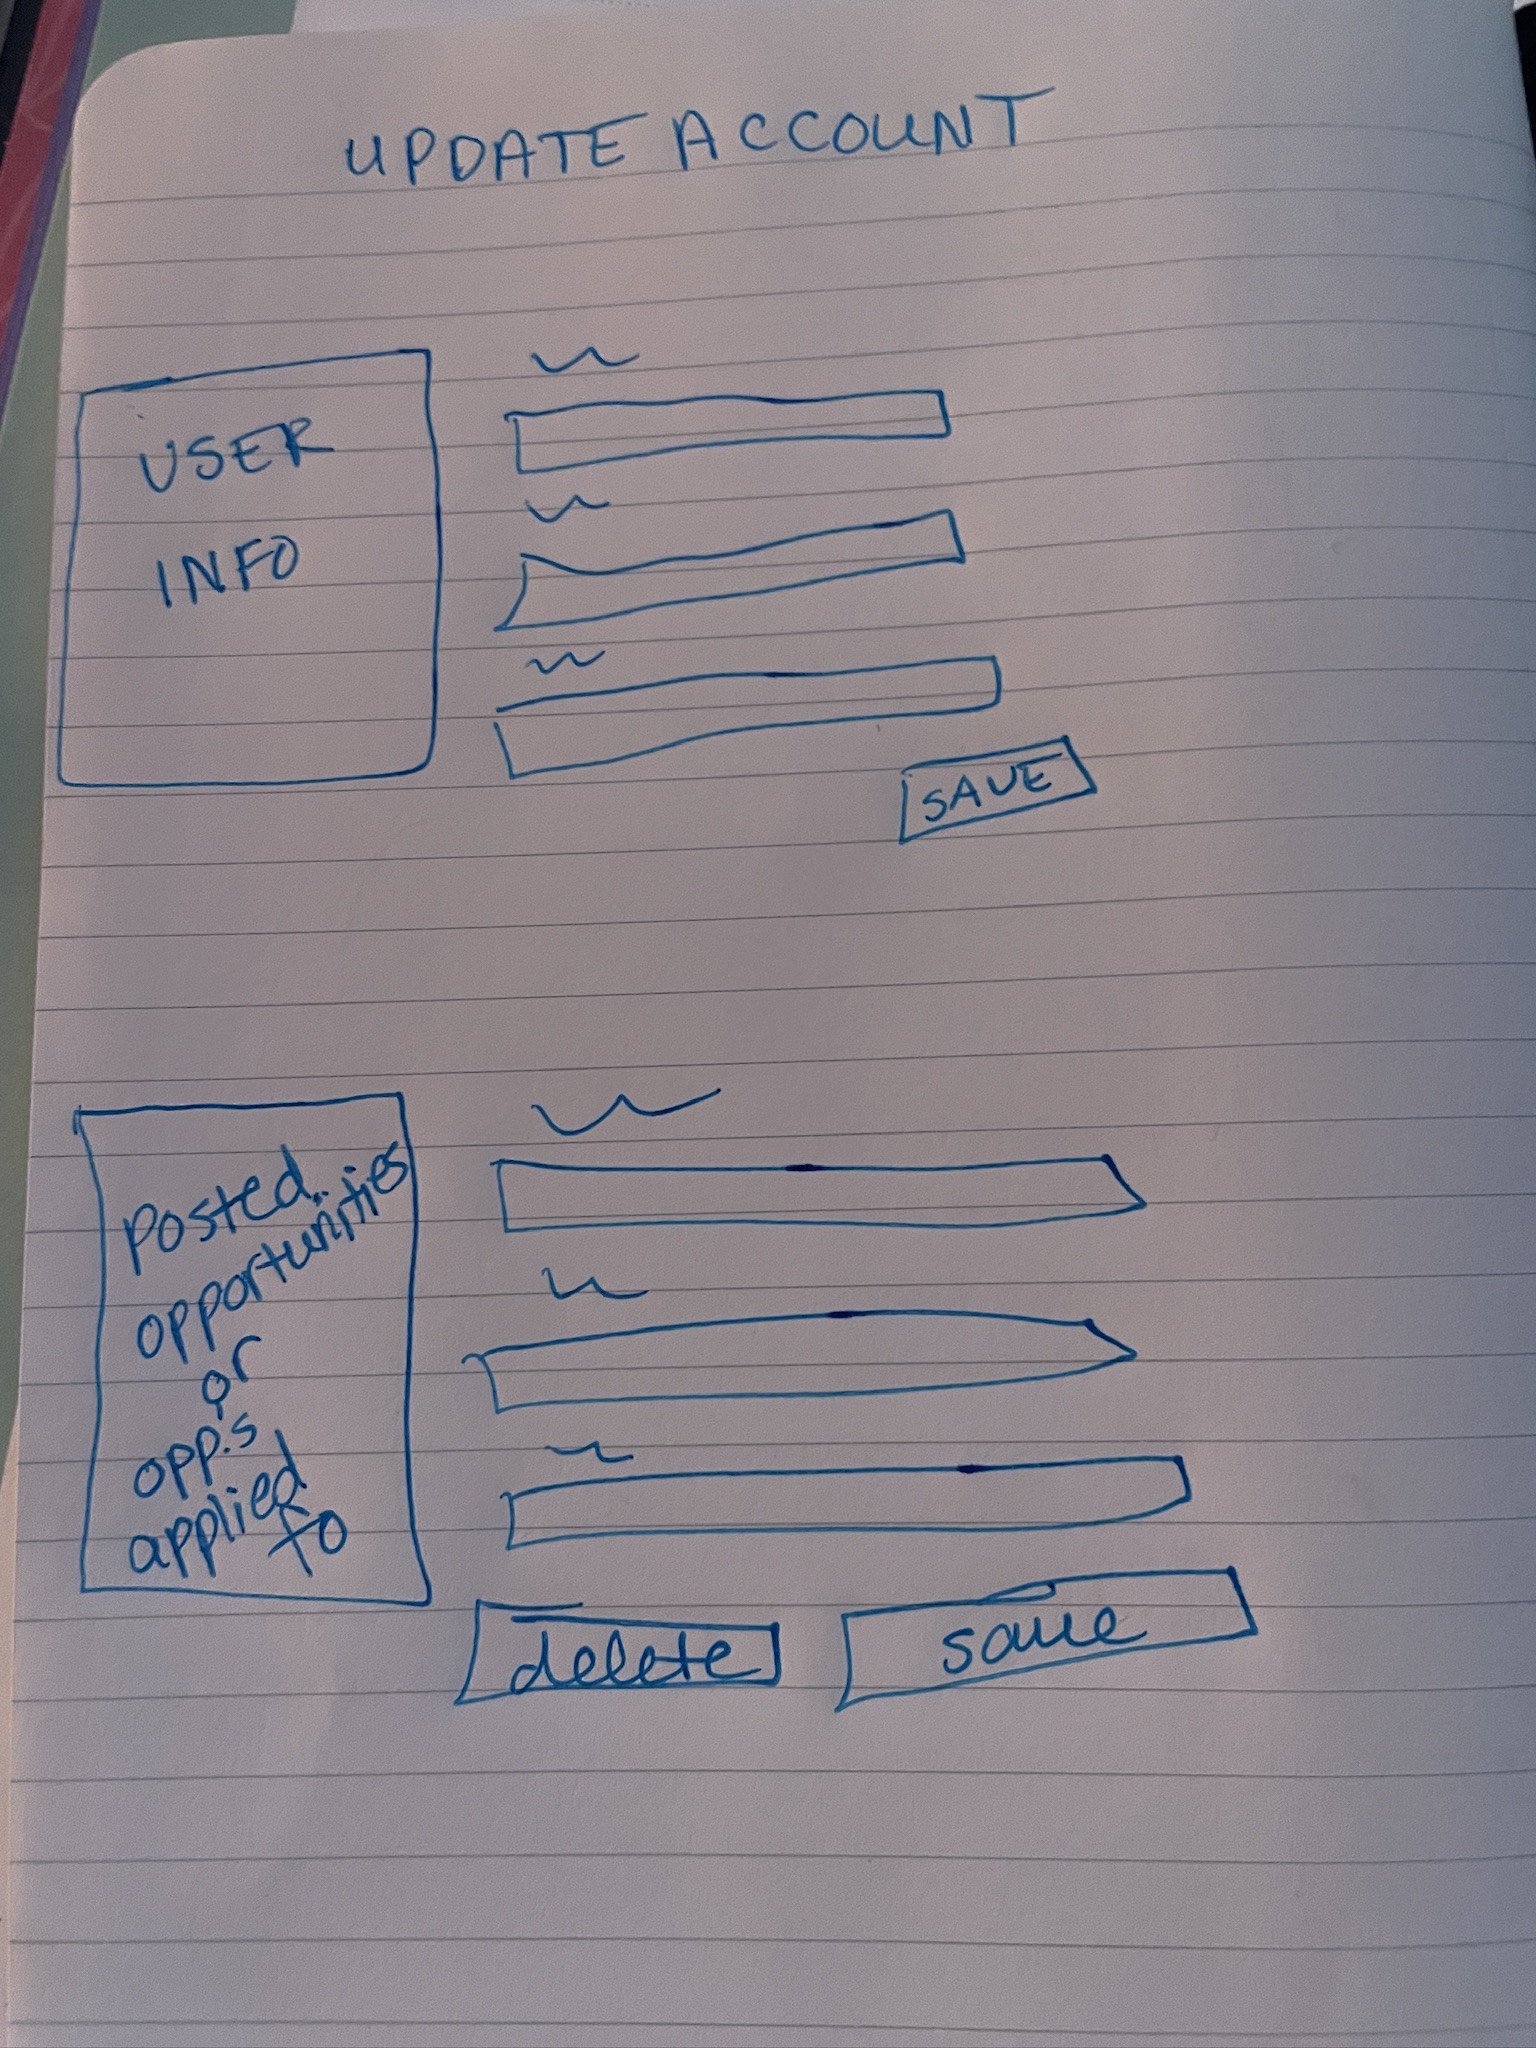 UPDATE ACCOUNT
USER
INFO
SAVE
posted
opportunities
or
opp.s
applied
to
delete
save